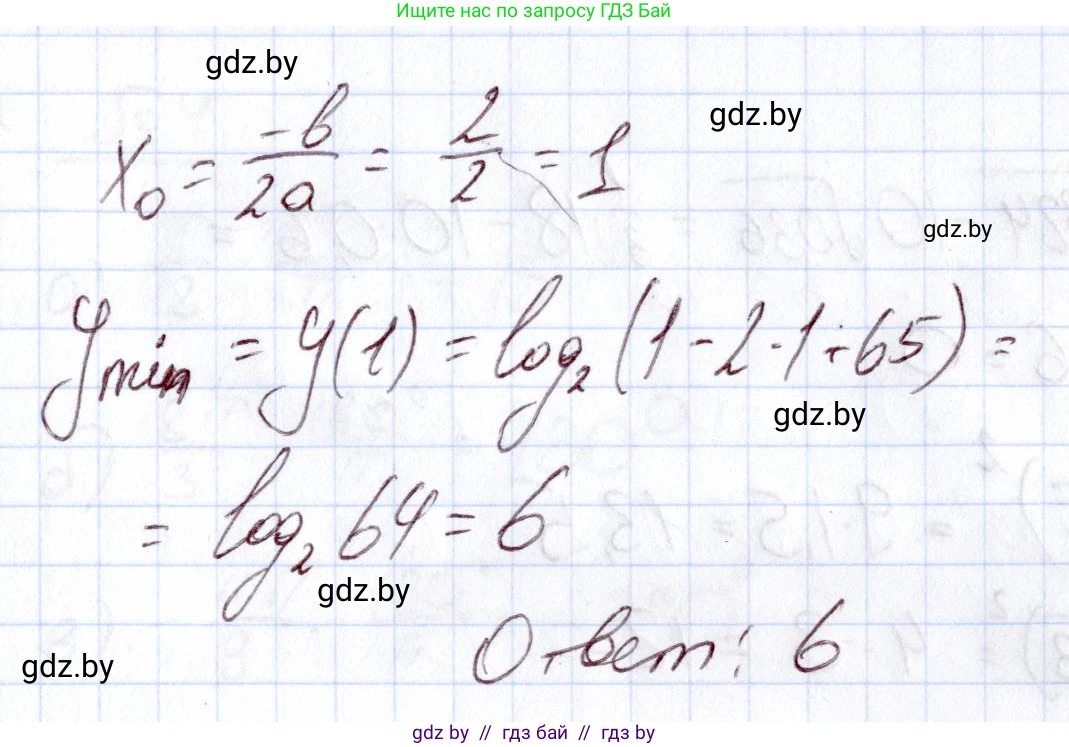 Ищите нас по запросу ГДЗ Бай
gdz.by
gdz.by
x₀ = -b/2a = 2/2 = 1
gdz.by
y min = y(1) = log₂(1-2·1+65) =
gdz.by
= log₂64 = 6
gdz.by
Ответ: 6
gdz.by
gdz by // гдз бай // гдз by